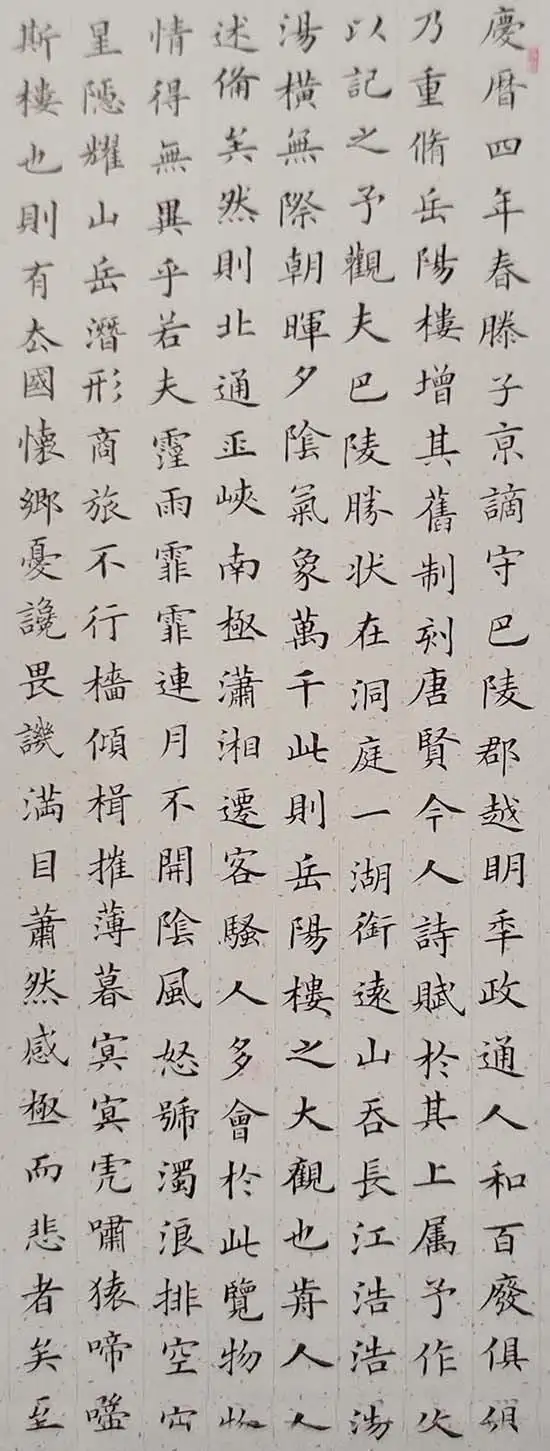 慶暦四年春滕子京謫守巴陵郡越明秊政通人和百廢俱
乃重脩岳陽樓增其舊制刻唐賢今人詩賦於其上属予作文
以記之予觀夫巴陵勝状在洞庭一湖銜遠山吞長江浩浩湯
湯橫無際朝暉夕陰氣象萬千此則岳陽樓之大觀也歬人
述俻矣然則北通巫峽南極瀟湘遷客騷人多會於此覽物
情得無異乎若夫霪雨霏霏連月不開陰風怒號濁浪排空
星隱耀山岳潛形商旅不行檣傾楫摧薄暮冥冥虎嘯猿啼
斯樓也則有去國懷鄉憂讒畏譏滿目蕭然感極而悲者矣至